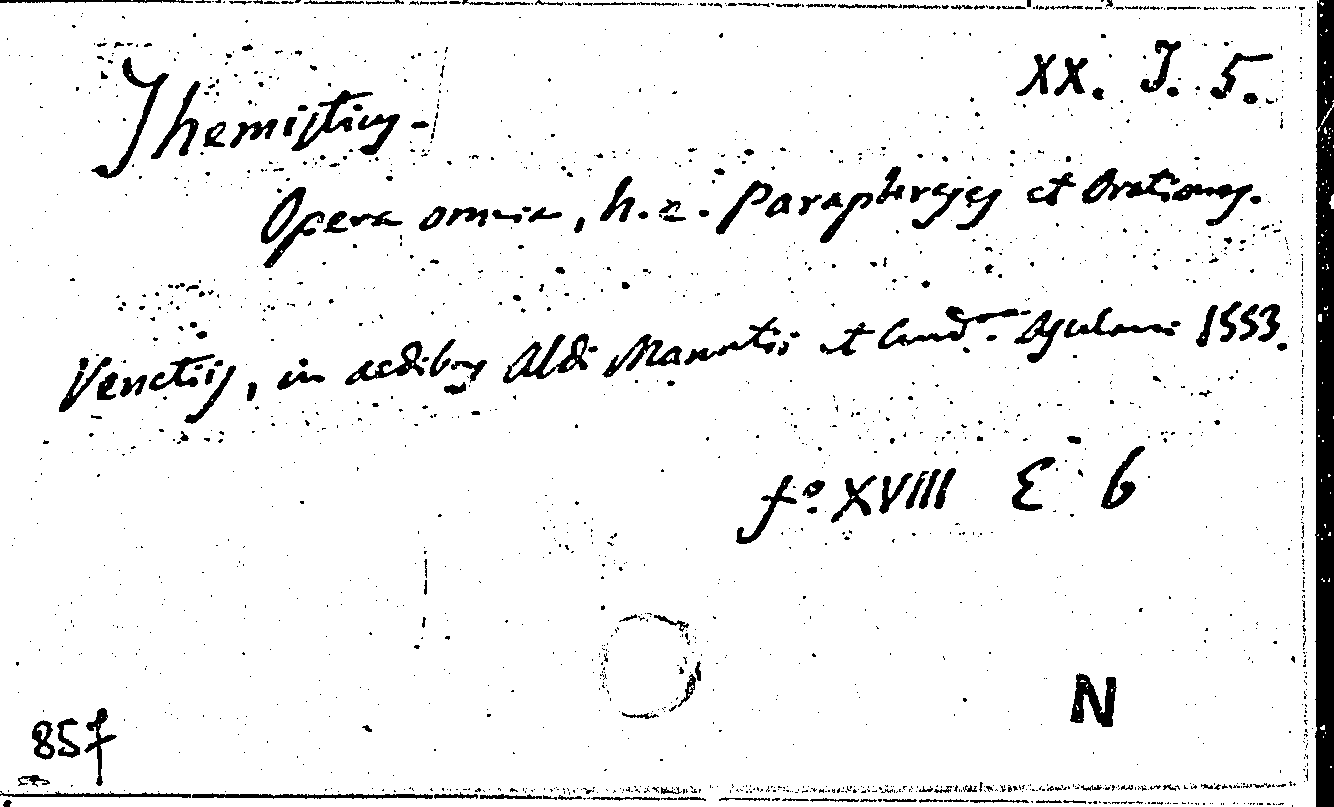 XX. J. 5.
Themistius.
Opera omnia, h.e. Paraphrases et Orationes.
Venetiis, in aedibus Aldi Manutii et Asulani 1553.
fo. XVIII E 6
N
857